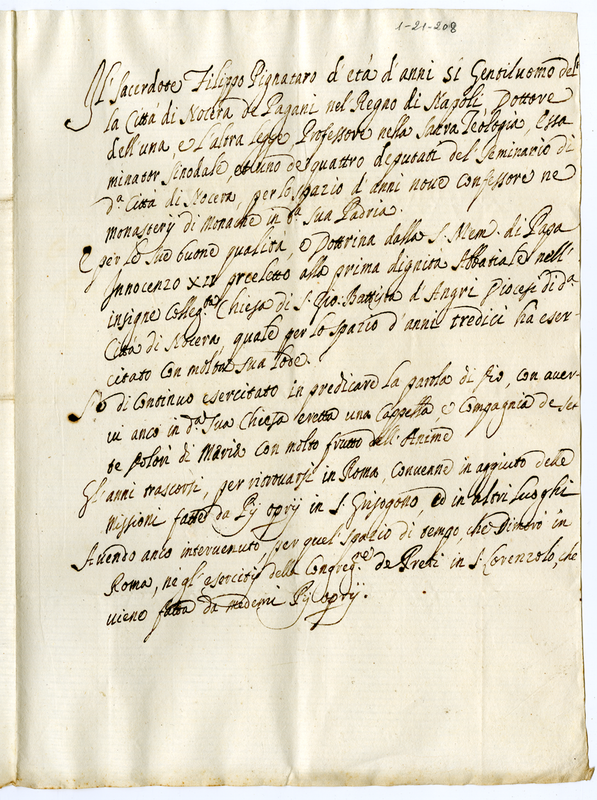 1-21-208
Il Sacerdote Filippo Pignataro d'età d'anni 51 Gentiluomo del
la Città di Nocera de Pagani nel Regno di Napoli, Dottore
dell'una e l'altra legge Professore nella Sacra Teologia, essa
minator Sinodale et uno de quattro deputati del Seminario di
d.ª Città di Nocera, per lo spazio d'anni nove Confessore ne
monasterij di Monache in d.ª Sua Padria.
E per le sue buone qualità, e Dottrina dalla S. Mem. di Papa
Innocenzo XII preeletto alla prima dignità Abbatiale nell'
insigne Colleg.ta Chiesa di S. Gio: Battista d'Angri Diocese di d.ª
Città di Nocera, quale per lo spatio d'anni tredici ha eser-
citato con molta sua lode.
Si è di continuo esercitato in predicare la parola di Dio, con aver-
vi anco in d.ª Sua Chiesa eretta una Cappella e Compagnia de Set
te Dolori di Maria con molto frutto dell'Anime
Gl'anni trascorsi, per ritrovarsi in Roma, convenne in aggiuto delle
missioni fatte da Pij Oprij in S. Grisogono, ed in altri luoghi
Avendo anco intervenuto, per quel spazio di tempo, che dimorò in
Roma, ne gl'esercitij della Congreg.ne de Preti in S. Lorenzolo, che
viene fatta da medemi Pij oprij.